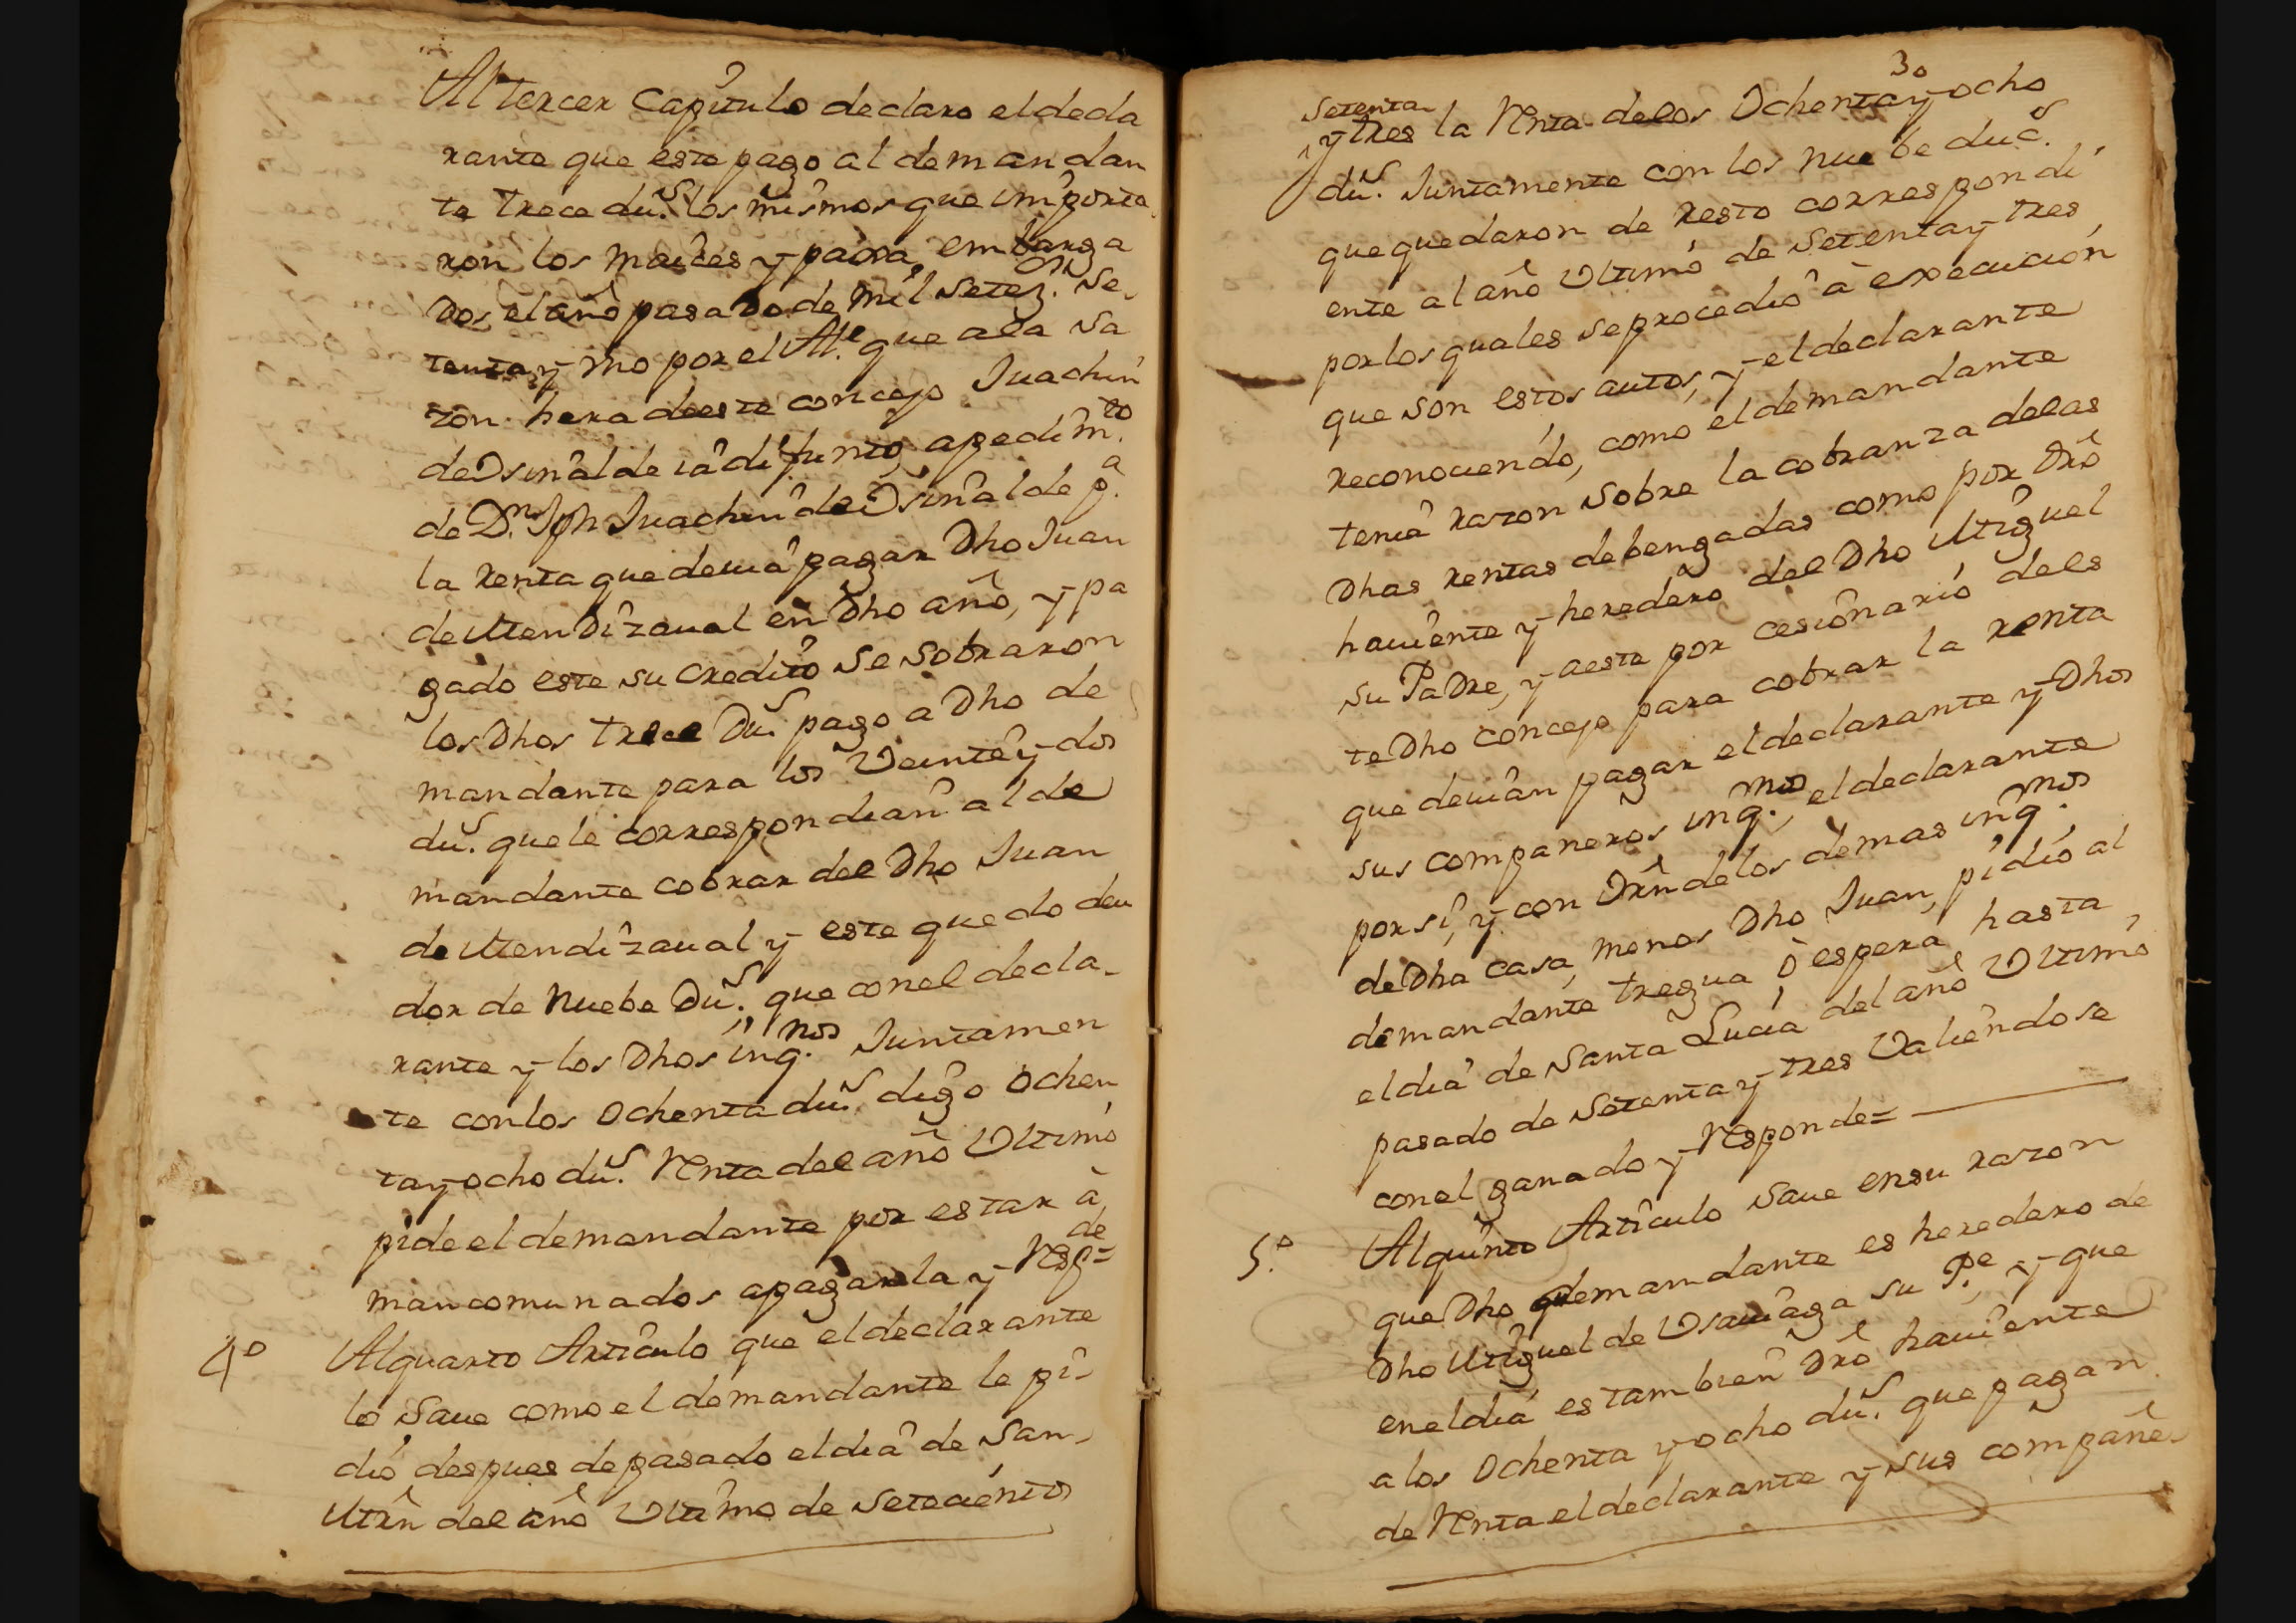 Al tercer Capitulo declaro el decla
rante que este pago al demandan
te trece dus. los mismos que importa
ron los maices y paxa embarga
dos, el año pasado de mil setez.os se
tenta y uno por el Al.e que a la sa
zon hera de este concejo Juachin
de Osinalde ia difunto, a pedim.to
de D.n Jph Juachin de Osinalde p.a
la renta que devia pagar Dho Juan
de Mendizaual en Dho año, y pa
gado este su credito se sobraron
los Dhos trece Dus. pago a Dho de
mandante para los Veinte y dos
dus. que le correspondian al de
mandante cobrar del Dho Juan
de Mendizaual y este quedo deu
dor de Nuebe Dus. que con el decla-
rante y los Dhos inq.nos Juntamen
te con los ochenta dus. digo ochen
ta y ocho dus. Renta del año Ultimo
pide el demandante por estar à
mancomunados a pagarla y Resp.de=
4º Al quarto Articulo que el declarante
lo Saue como el demandante le pi-
dió despues de pasado el dia de San
Mrn del año Ultimo de setecientos
30
setenta
y tres la Renta de los Ochenta y ocho
dus. Juntamente con los nuebe duc.s
que quedaron de resto correspondi
ente al año Ultimo de setenta y tres
por los quales se procedió à execución
que son estos autos, y el declarante
reconociendo, como el demandante
tenia razon sobre la cobranza de las
Dhas rentas debengadas como por Dro
haviente y heredero del Dho Miguel
su Padre, y aeste por cesionario de es
te Dho concejo para cobrar la renta
que devian pagar el declarante y Dhos
sus companeros inq.nos, el declarante
por si, y con Orn de los demas inq.nos
de Dha casa, menos Dho Juan, pidió al
demandante tregua ò espera hasta
el dia de Santa Lucia del año Ultimo
pasado de Setenta y tres Valiendose
con el ganado y Responde=
5.º Al quinto Articulo Saue en su razon
que Dho demandante es heredero de
Dho Miguel de Usauiaga su P.e, y que
en el dia es tambien Dro haviente
a los Ochenta y ocho dus. que pagan
de Renta el declarante y sus compañe-